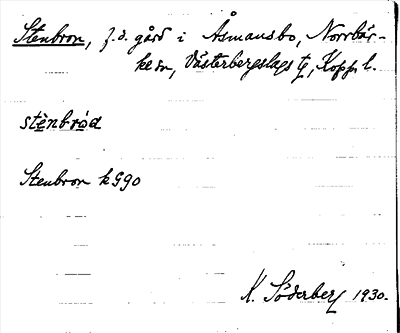 Stenbron, f.d. gård i Åsmansbo, Norrbär-
ke sn, Västerbergslags tg, Kopp. l.
stènbròd
Stenbron k G90
K. Söderberg 1930.